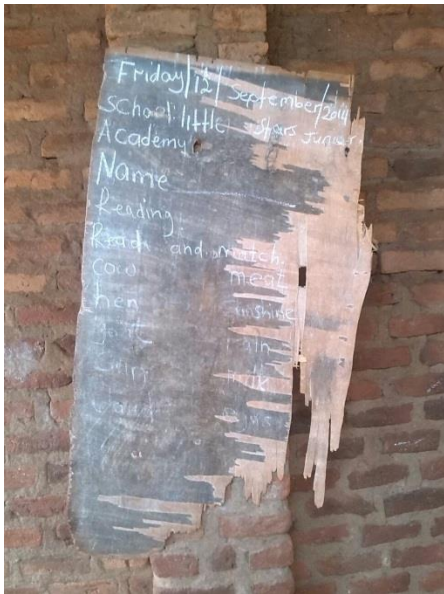 Friday/12/September/2014
School: little Stars Junior
Academy
Name
Reading
Read and match.
cow meat
hen sunshine
rain
milk